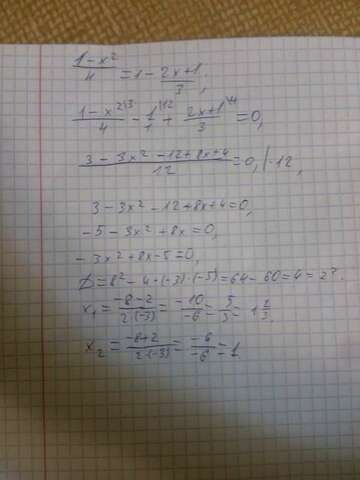 1-x²/4 = 1 - 2x+1/3;
1-x²\3/4 - 1\12/1 + 2x+1\4/3 = 0,
3 - 3x² - 12 + 8x + 4/12 = 0, | ·12,
3 - 3x² - 12 + 8x + 4 = 0,
-5 - 3x² + 8x = 0,
-3x² + 8x - 5 = 0,
D = 8² - 4·(-3)·(-5) = 64 - 60 = 4 = 2².
x₁ = -8-2/2·(-3) = -10/-6 = 5/3 = 1 2/3.
x₂ = -8+2/2·(-3) = -6/-6 = 1